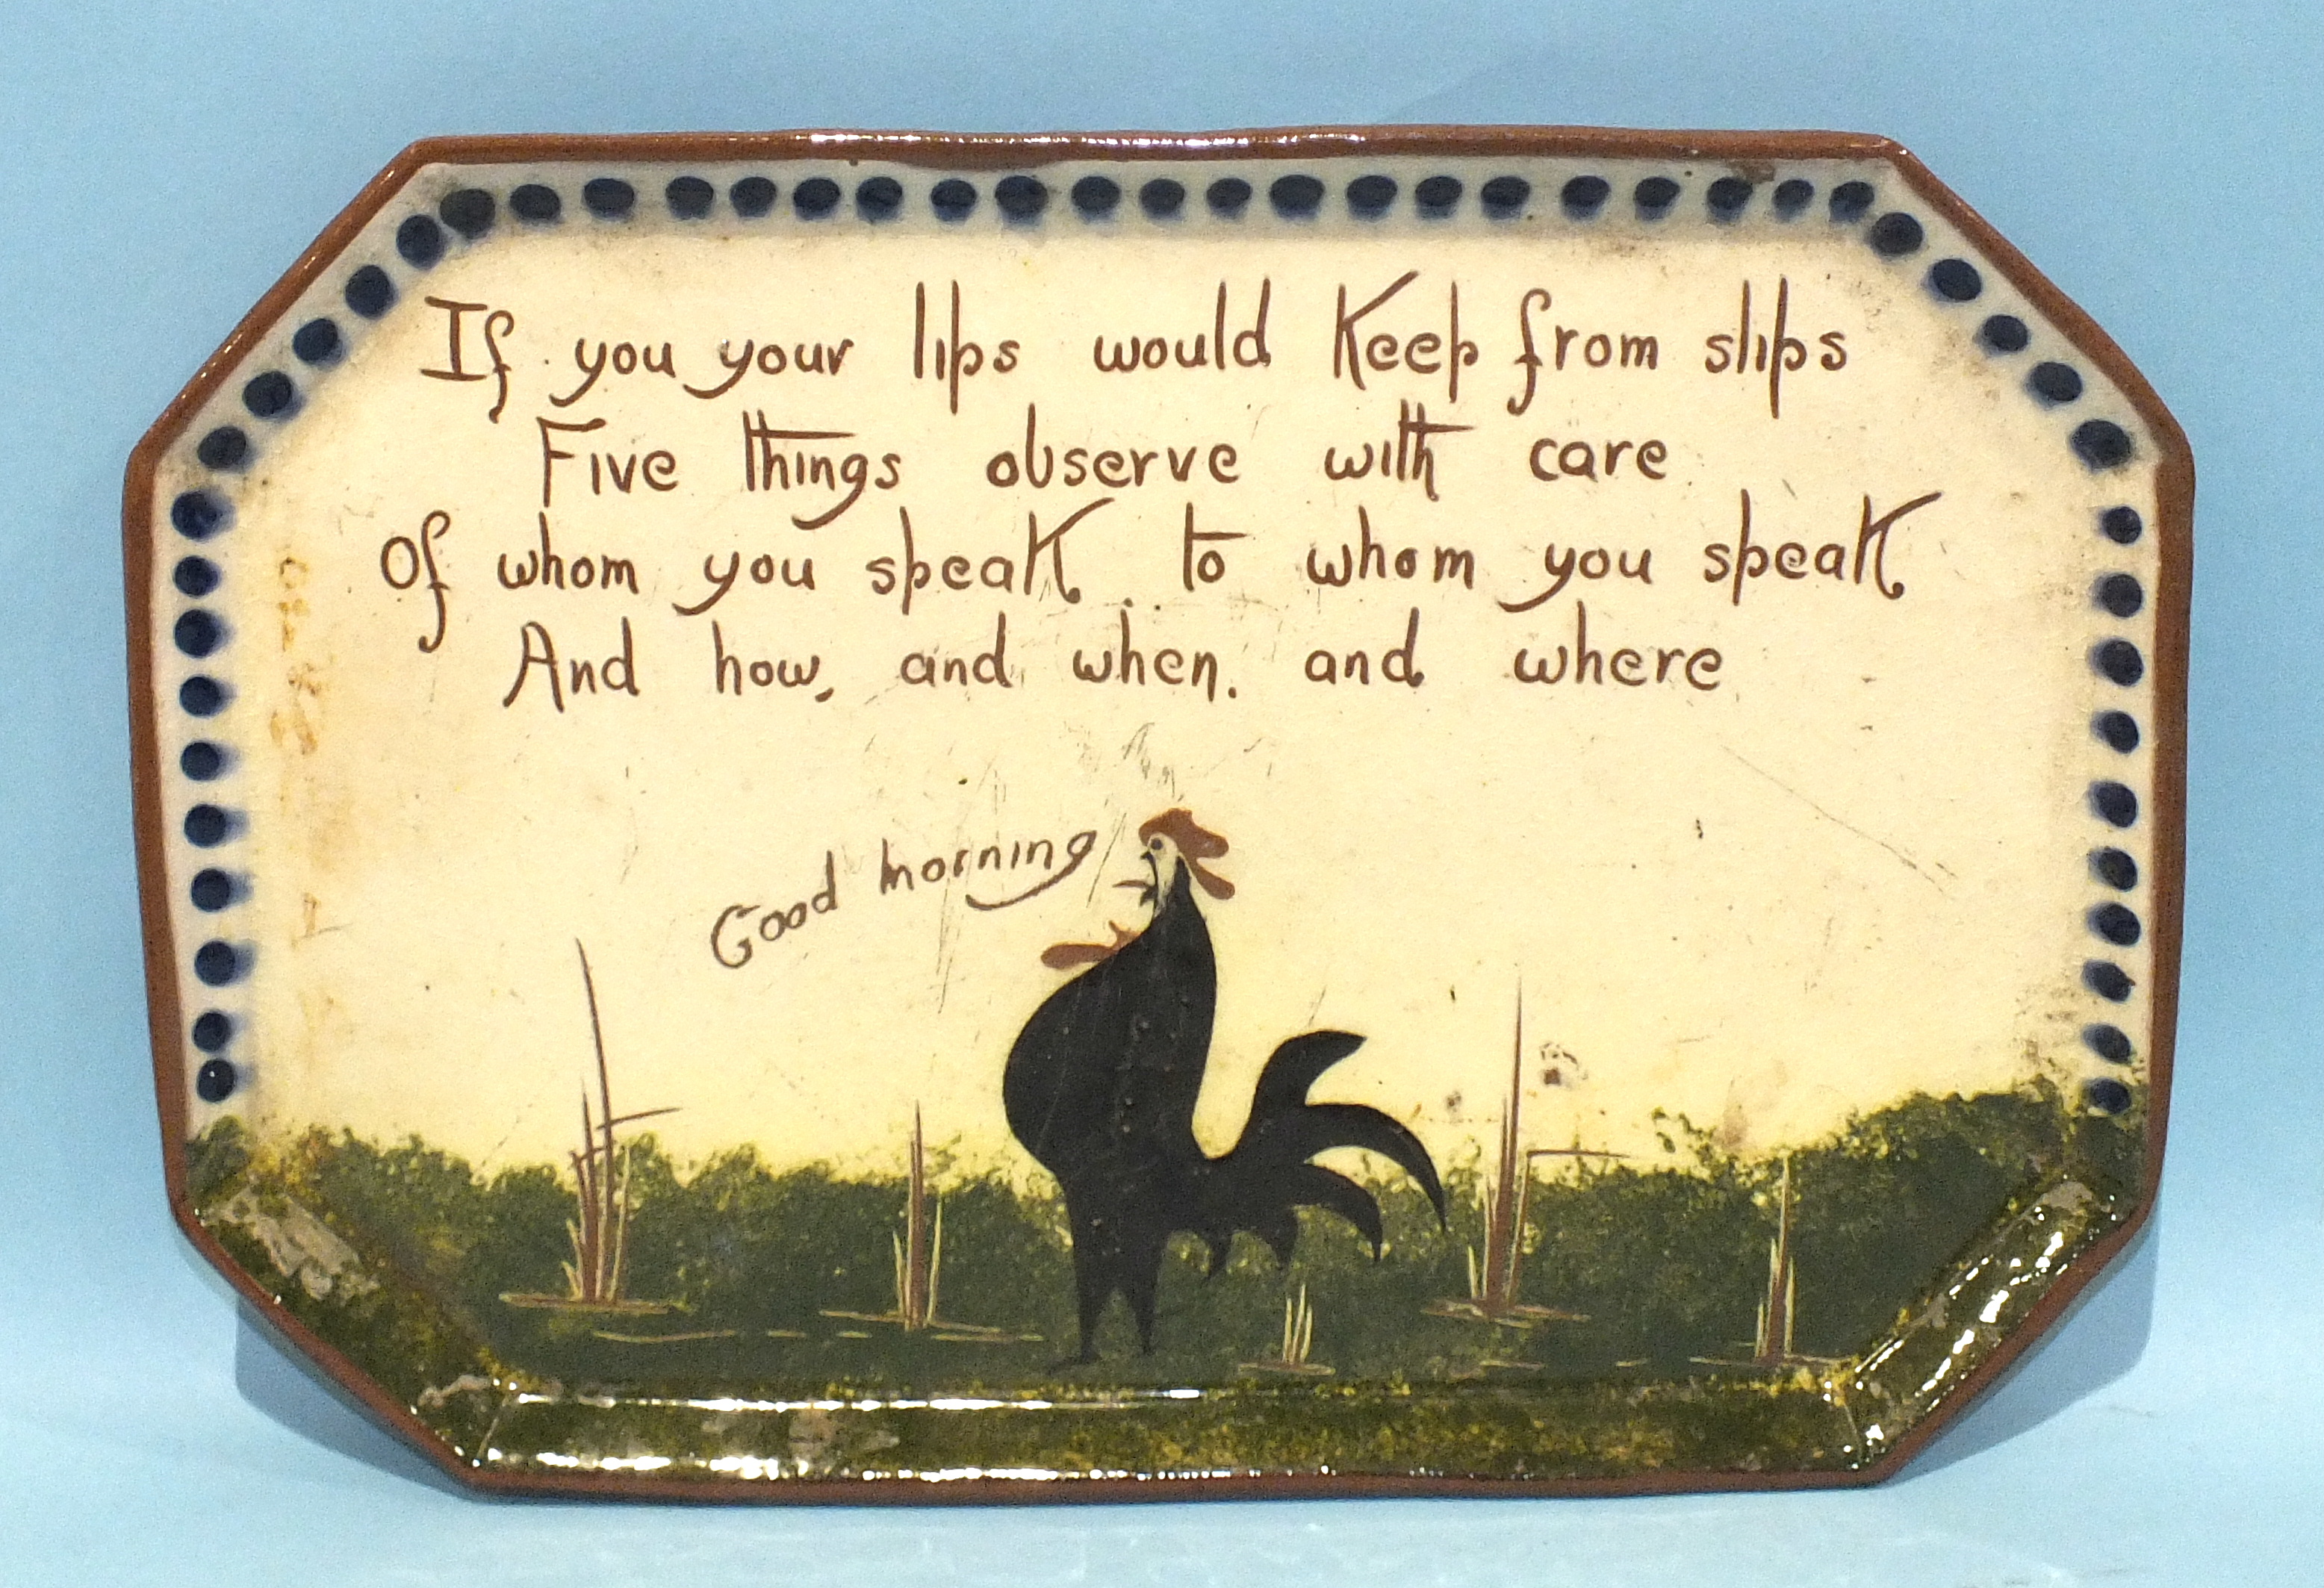 If you your lips would Keep from slips
Five things observe with care
Of whom you speak. to whom you speak
And how, and when. and where
Good morning